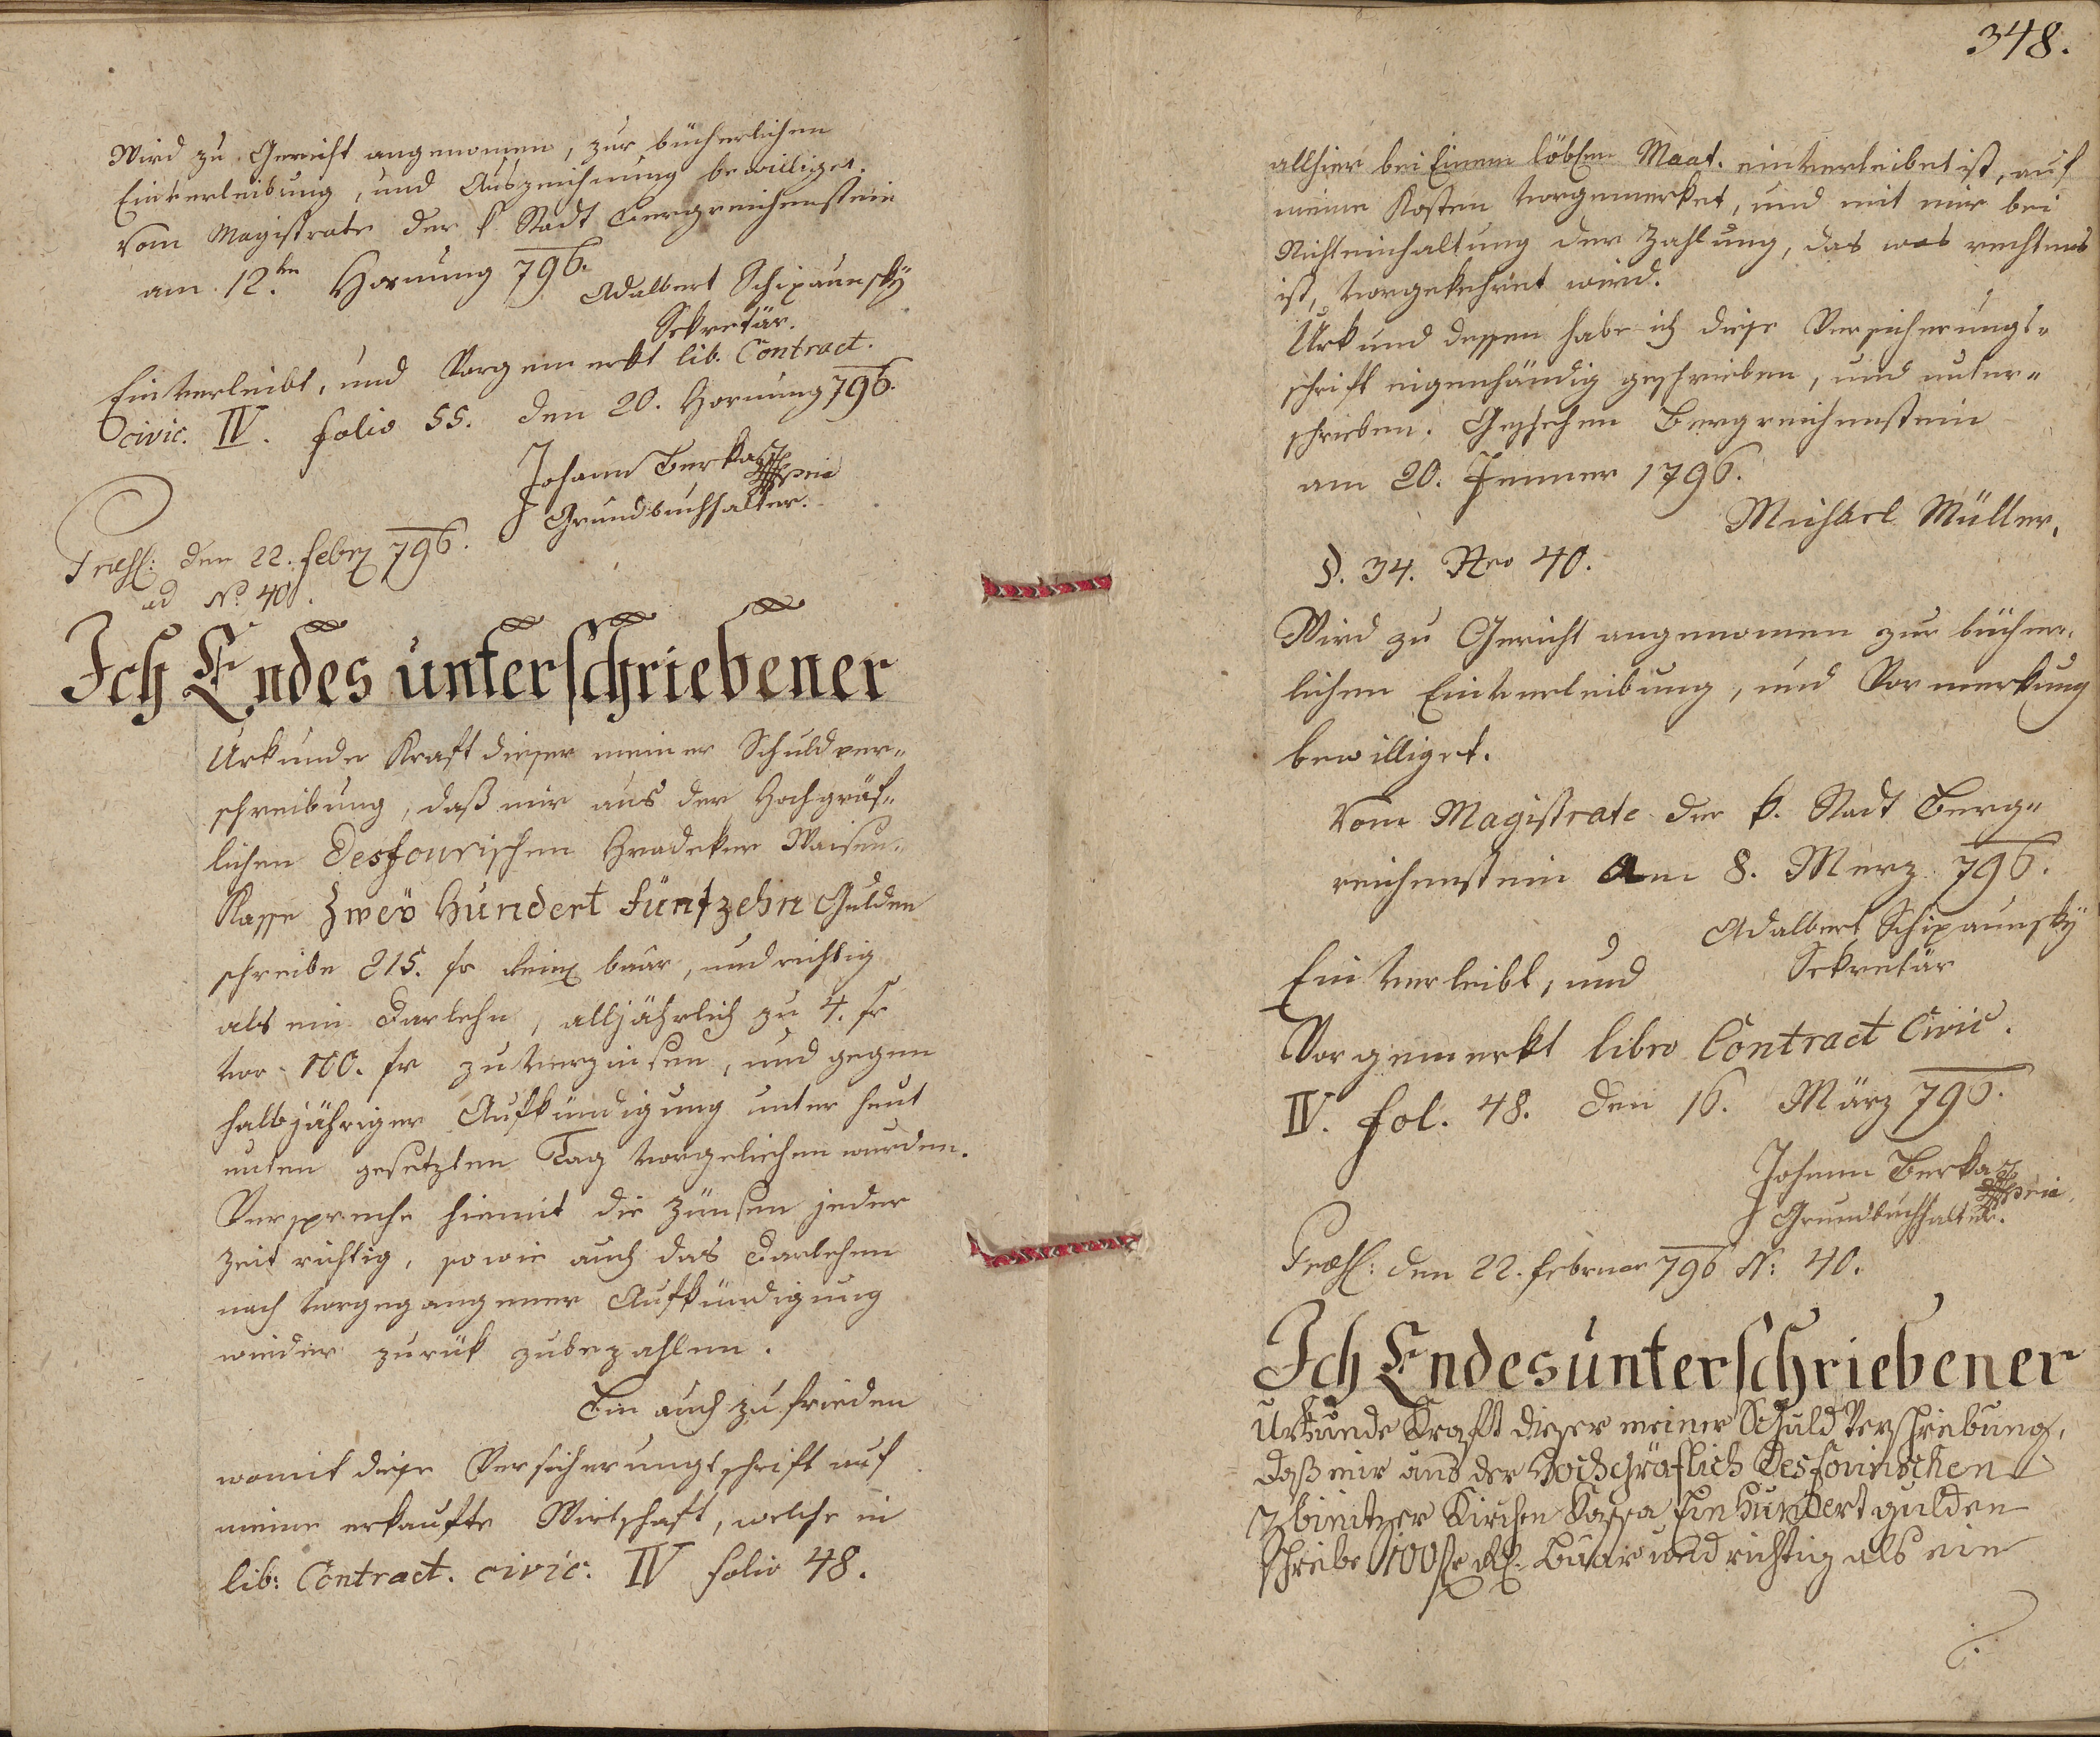 Wird zu Gericht angenomen, zur bücherlichen
Einverleibung, und Auszeichnung bewilliget.
Vom Magistrate der k. Stadt Bergreichenstein
am 12.ten Hornung 796.
Adalbert Schipaunsky
Sekretär.
Einverleibt, und Vorgemerkt lib. Contract.
civic. IV. folio 55. den 20. Hornung 796.
Johann Berka mpria
Grundbuchhalter.
Præs: den 22. feber 796.
ad No. 40.
Ich Endes unterschriebener
Urkunde Kraft dieser meiner Schuldver„
schreibung, daß mir aus der Hochgräf„
lichen Desfourischen Hradeker Waisen„
Kasse Zwey Hundert Fünfzehn Gulden
schreibe 215. fr baar, und richtig
als ein Darlehn, alljährlich zu 4. fr
vor 100. fr zu verzinsen, und gegen
halbjähriger Aufkündigung unter heut
unten gesetzten Tag vorgeliehen wurden.
Verspreche hiemit die Zünsen jeder
Zeit richtig, so wie auch das Darlehen
nach vorgegangener Aufkündigung
wieder zurük zubezahlen.
Bin auch zufrieden
womit diese Versicherungsschrift auf
meine erkaufte Wirtschaft, welche in
lib: Contract. civic: IV folio 48.
348.
allhier bei Einem löblen Maat. einverleibet ist, auf
meine Kosten vorgemerket, und mit mir bei
Nichteinhaltung der Zahlung, das was rechtens
ist, vorgekehret wird.
Urkund dessen habe ich diese Versicherungs„
schrift eigenhändig geschrieben, und unter„
schrieben. Geschehen Bergreichenstein
am 20. Jenner 1796.
Michael Müller.
§. 34. Nro 40.
Wird zu Gericht angenomen zur bücher„
lichen Einverleibung, und Vormerkung
bewilliget.
Vom Magistrate der k. Stadt Berg„
reichenstein am 8. Merz 796.
Adalbert Schipaunsky
Sekretär
Einverleibt, und
Vorgemerkt libro Contract Civic.
IV. fol. 48. den 16. März 796.
Johann Berka mpria
Grundbuchhalter.
Præs: den 22. februar 796 N: 40.
Ich Endesunterschriebener
Urkunde Kraft dieser meiner Schuld Verschreibung,
daß mir aus der Hochgräflich Desfourischen
Kirchen Cassa Ein Hundert gulden
schreibe 100 fr baar und richtig als ein